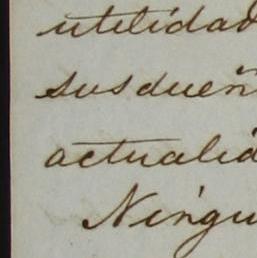 utilidad
sus dueñ
actualid
Ningu